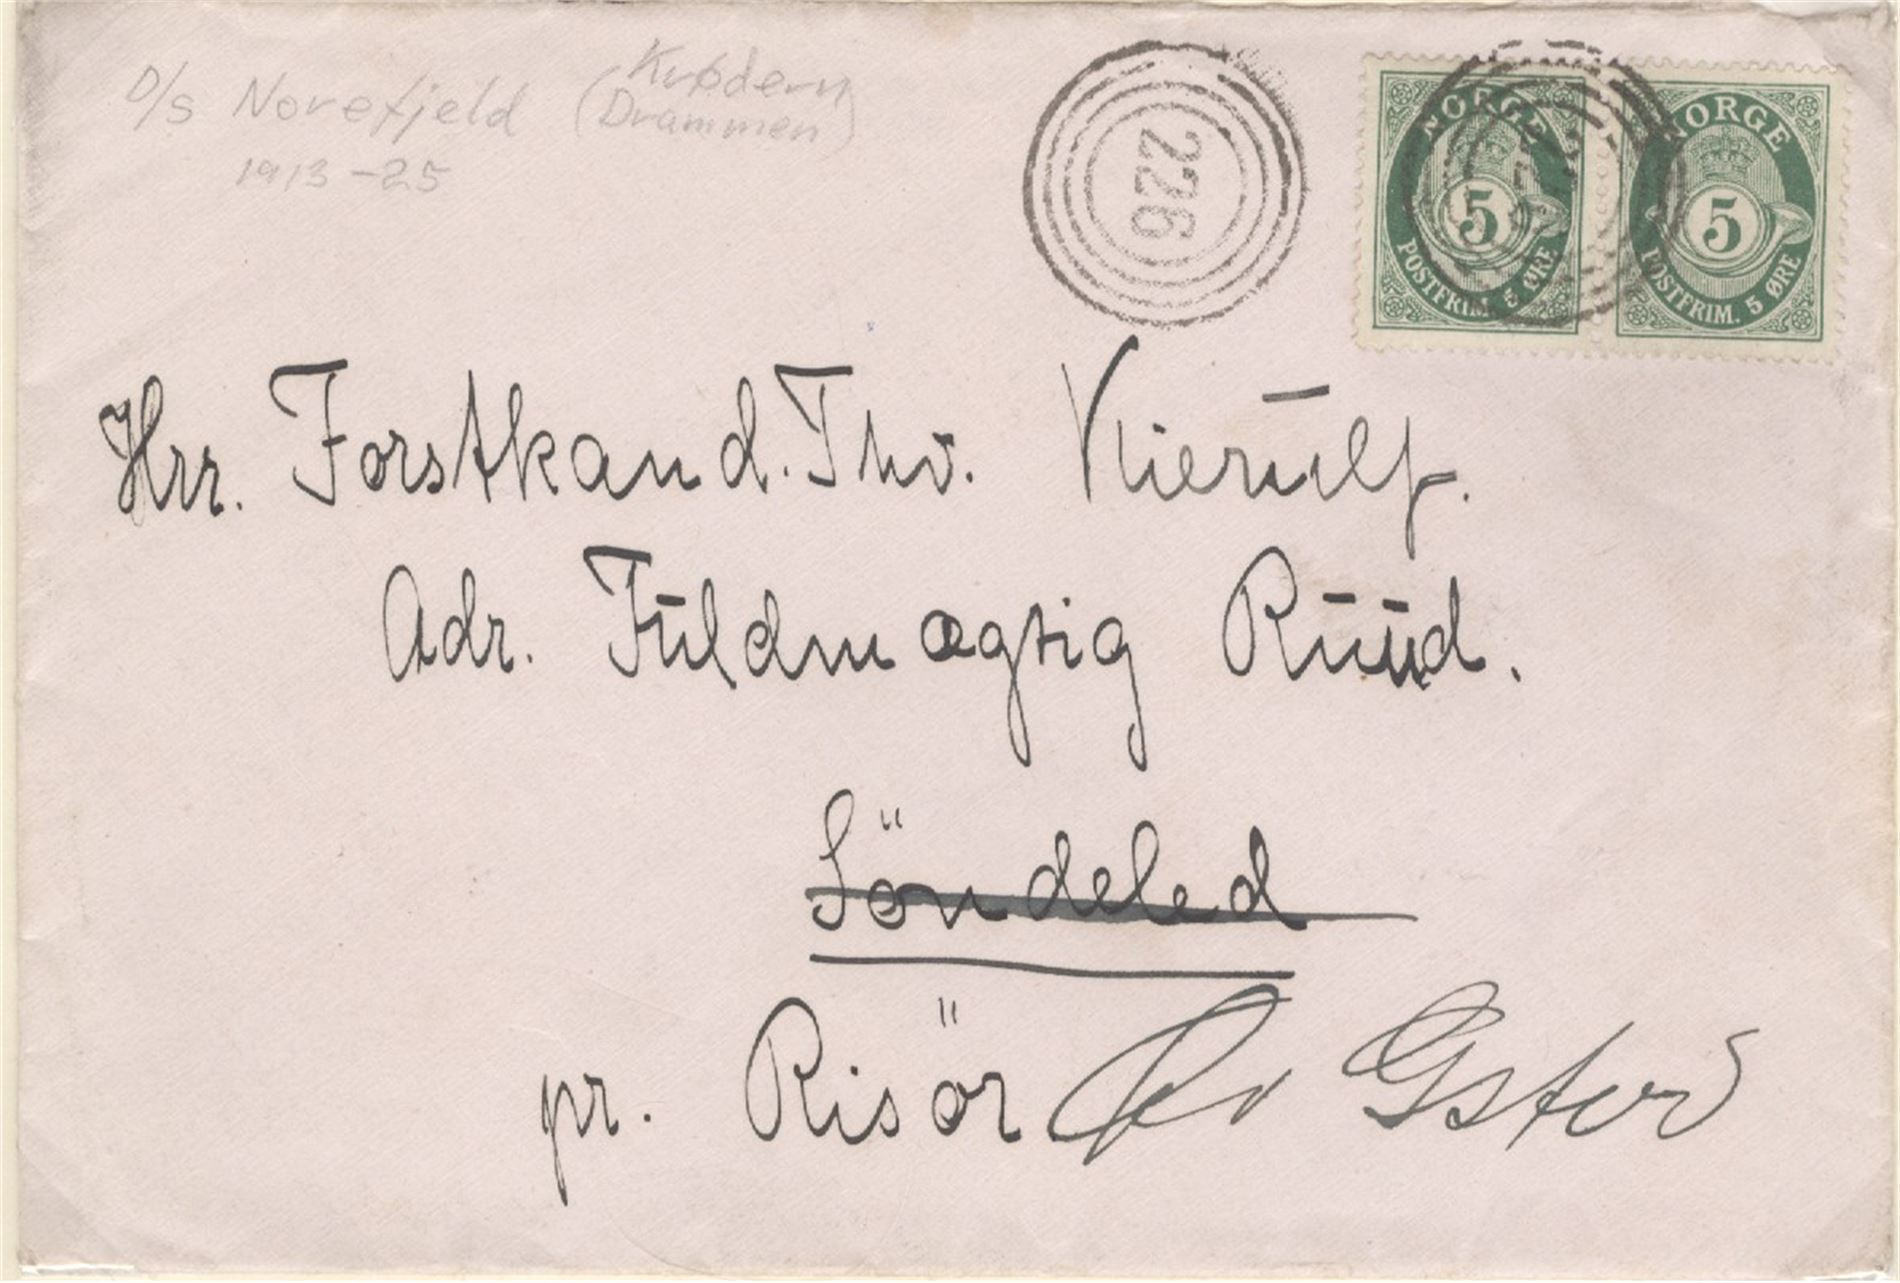 D/S Norefjeld (Krødern
Drammen)
1913-25
226
NORGE
5
POSTFRIM. 5 ØRE
NORGE
5
POSTFRIM. 5 ØRE
Hrr. Forstkand. Thv. Kierulf.
Adr. Fuldmægtig Ruud.
Söndeled
pr. Risör